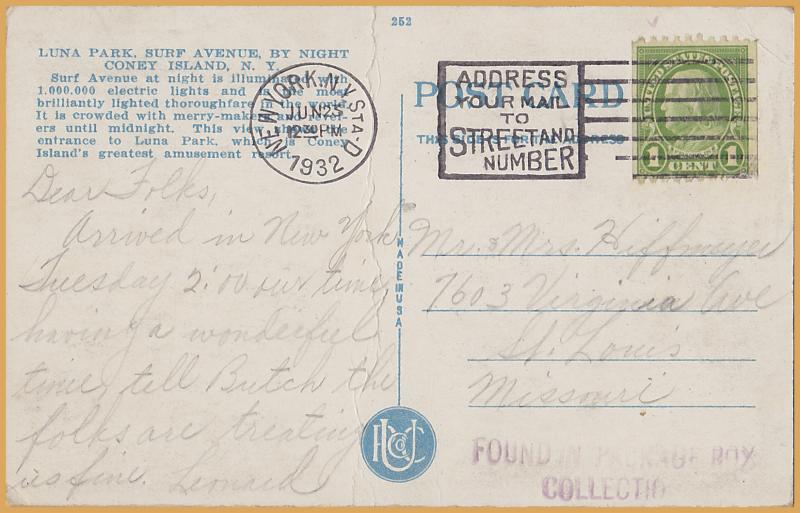 252
LUNA PARK, SURF AVENUE, BY NIGHT
CONEY ISLAND, N. Y.
Surf Avenue at night is illuminated with
1.000.000 electric lights and is the most
brilliantly lighted thoroughfare in the world.
It is crowded with merry-makers and
ers until midnight. This view shows the
entrance to Luna Park, which is Coney
Island's greatest amusement resort.
NEW YORK, N.Y. STA-D
JUN 25
12 30 PM
1932
POST CARD
THIS SIDE FOR THE ADDRESS
ADDRESS
YOUR MAIL
TO
STREET AND
NUMBER
UNITED STATES POSTAGE
1 CENT 1
Dear Folks,
Arrived in New York
Tuesday 2:00 our time,
having a wonderful
time, tell Butch the
folks are treating
us fine. Leonard
MADE IN USA
Mr. & Mrs. Hiffmeyer
7603 Virginia Ave
St. Louis
Missouri
FOUND IN PACKAGE BOX
COLLECTIO